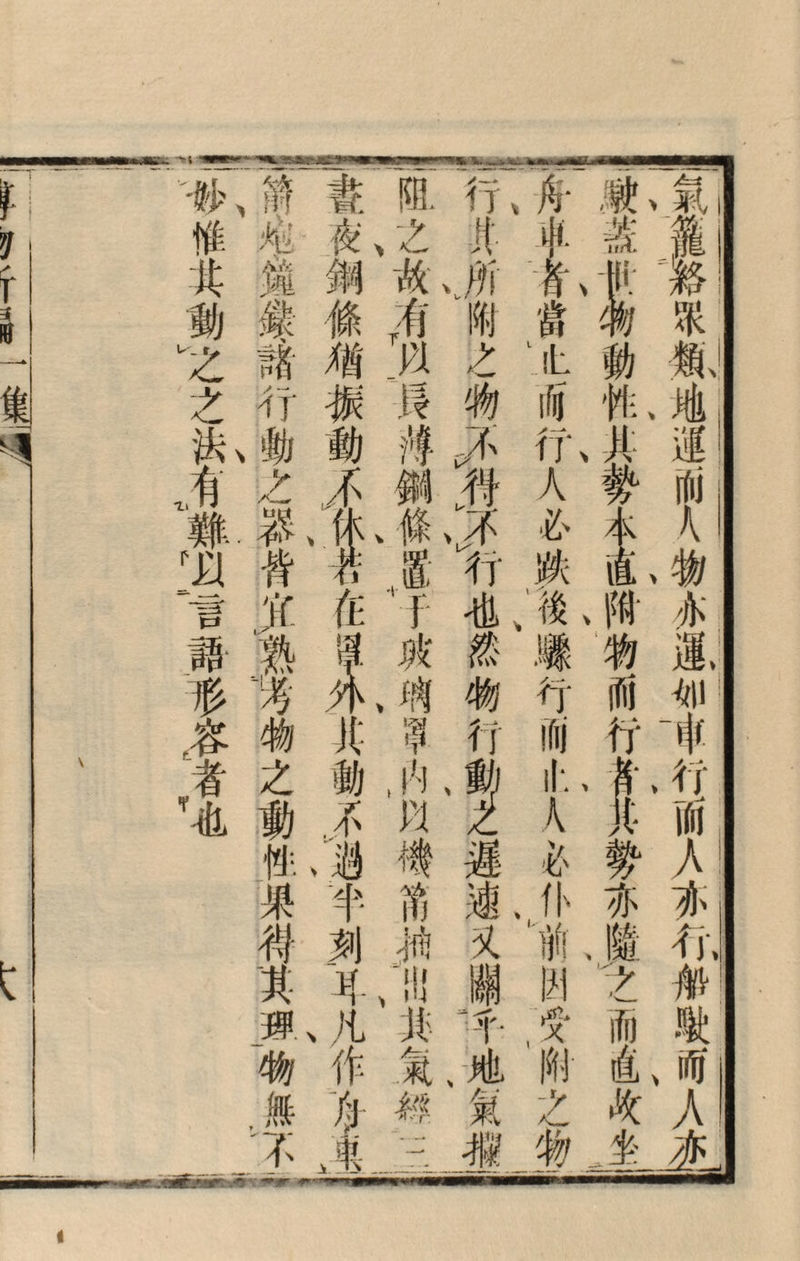 氣籠絡眾類、地運而人物亦運、如車行而人亦行、船駛而人亦
駛、蓋世物動性、其勢本直、附物而行者、其勢亦隨之而直、故坐
舟車者、當止而行、人必跌後、驟行而止、人必仆前、因受附之物
行、其所附之物不得不行也、然物行動之遲速、又關乎地氣攔
阻之故、有以長薄鋼條、置于玻璃罩內、以機筩抽出其氣、經三
晝夜、鋼條猶振動不休、若在罩外、其動不過半刻耳、凡作舟車、
筩炮鐘錶諸行動之器、皆宜熟考物之動性、果得其理、物無不
妙、惟其動之之法、有難以言語形容者也
博物新編一集